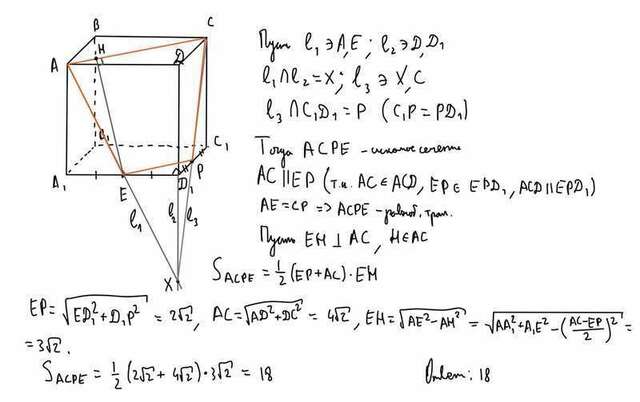 B
C
H
A
D
Пусть l₁ ∋ A, E; l₂ ∋ D, D₁
l₁ ∩ l₂ = X; l₃ ∋ X, C
l₃ ∩ C₁D₁ = P (C₁P = PD₁)
Тогда ACPE - искомое сечение
AC || EP (т.к. AC ∈ ACD, EP ∈ EPD₁, ACD || EPD₁)
AE = CP => ACPE - равноб. трап.
Пусть EH ⊥ AC, H ∈ AC
B₁
C₁
P
A₁
E
D₁
l₁
l₂
l₃
X
S_ACPE = 1/2 (EP + AC) · EH
EP = √(ED₁² + D₁P²) = 2√2, AC = √(AD² + DC²) = 4√2, EH = √(AE² - AH²) = √(AA₁² + A₁E² - ((AC - EP)/2)²) =
= 3√2.
S_ACPE = 1/2 (2√2 + 4√2) · 3√2 = 18
Ответ: 18